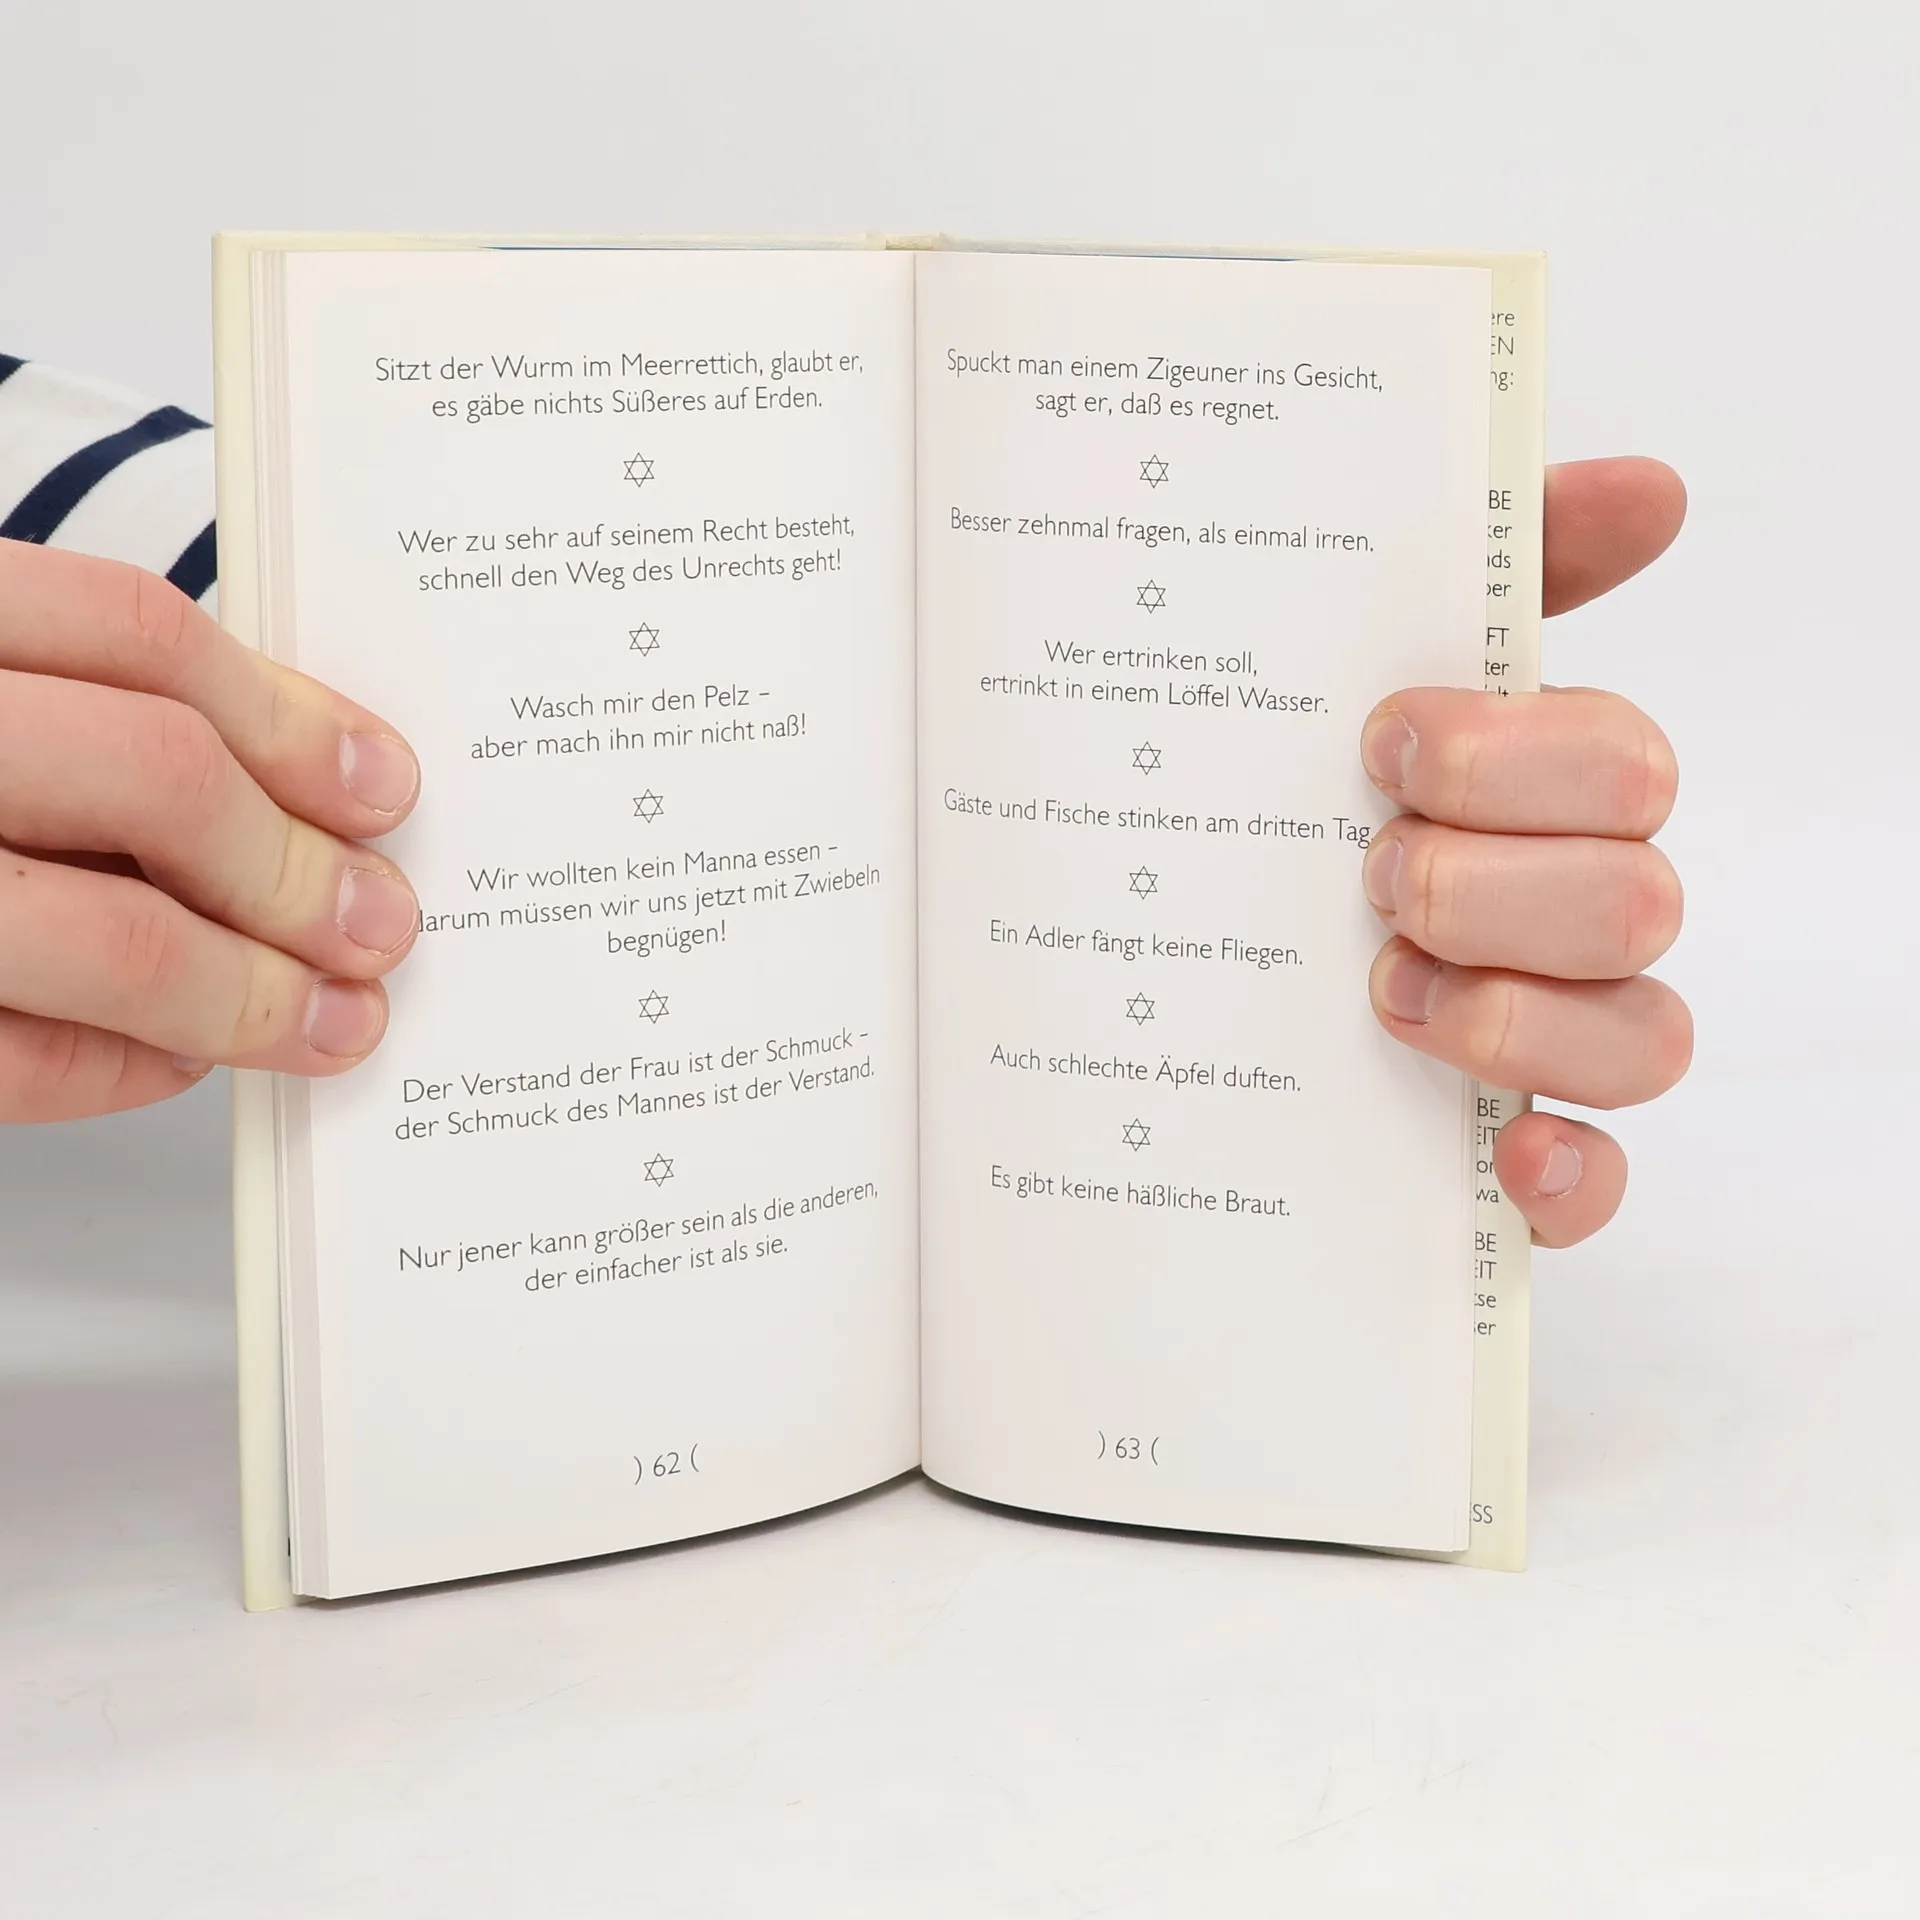 Sitzt der Wurm im Meerrettich, glaubt er,
es gäbe nichts Süßeres auf Erden.
Wer zu sehr auf seinem Recht besteht,
schnell den Weg des Unrechts geht!
Wasch mir den Pelz –
aber mach ihn mir nicht naß!
Wir wollten kein Manna essen –
müssen wir uns jetzt mit Zwiebeln
begnügen!
Der Verstand der Frau ist der Schmuck –
der Schmuck des Mannes ist der Verstand.
Nur jener kann größer sein als die anderen,
der einfacher ist als sie.
) 62 (
Spuckt man einem Zigeuner ins Gesicht,
sagt er, daß es regnet.
Besser zehnmal fragen, als einmal irren.
Wer ertrinken soll,
ertrinkt in einem Löffel Wasser.
Gäste und Fische stinken am dritten Tag.
Ein Adler fängt keine Fliegen.
Auch schlechte Äpfel duften.
Es gibt keine häßliche Braut.
) 63 (